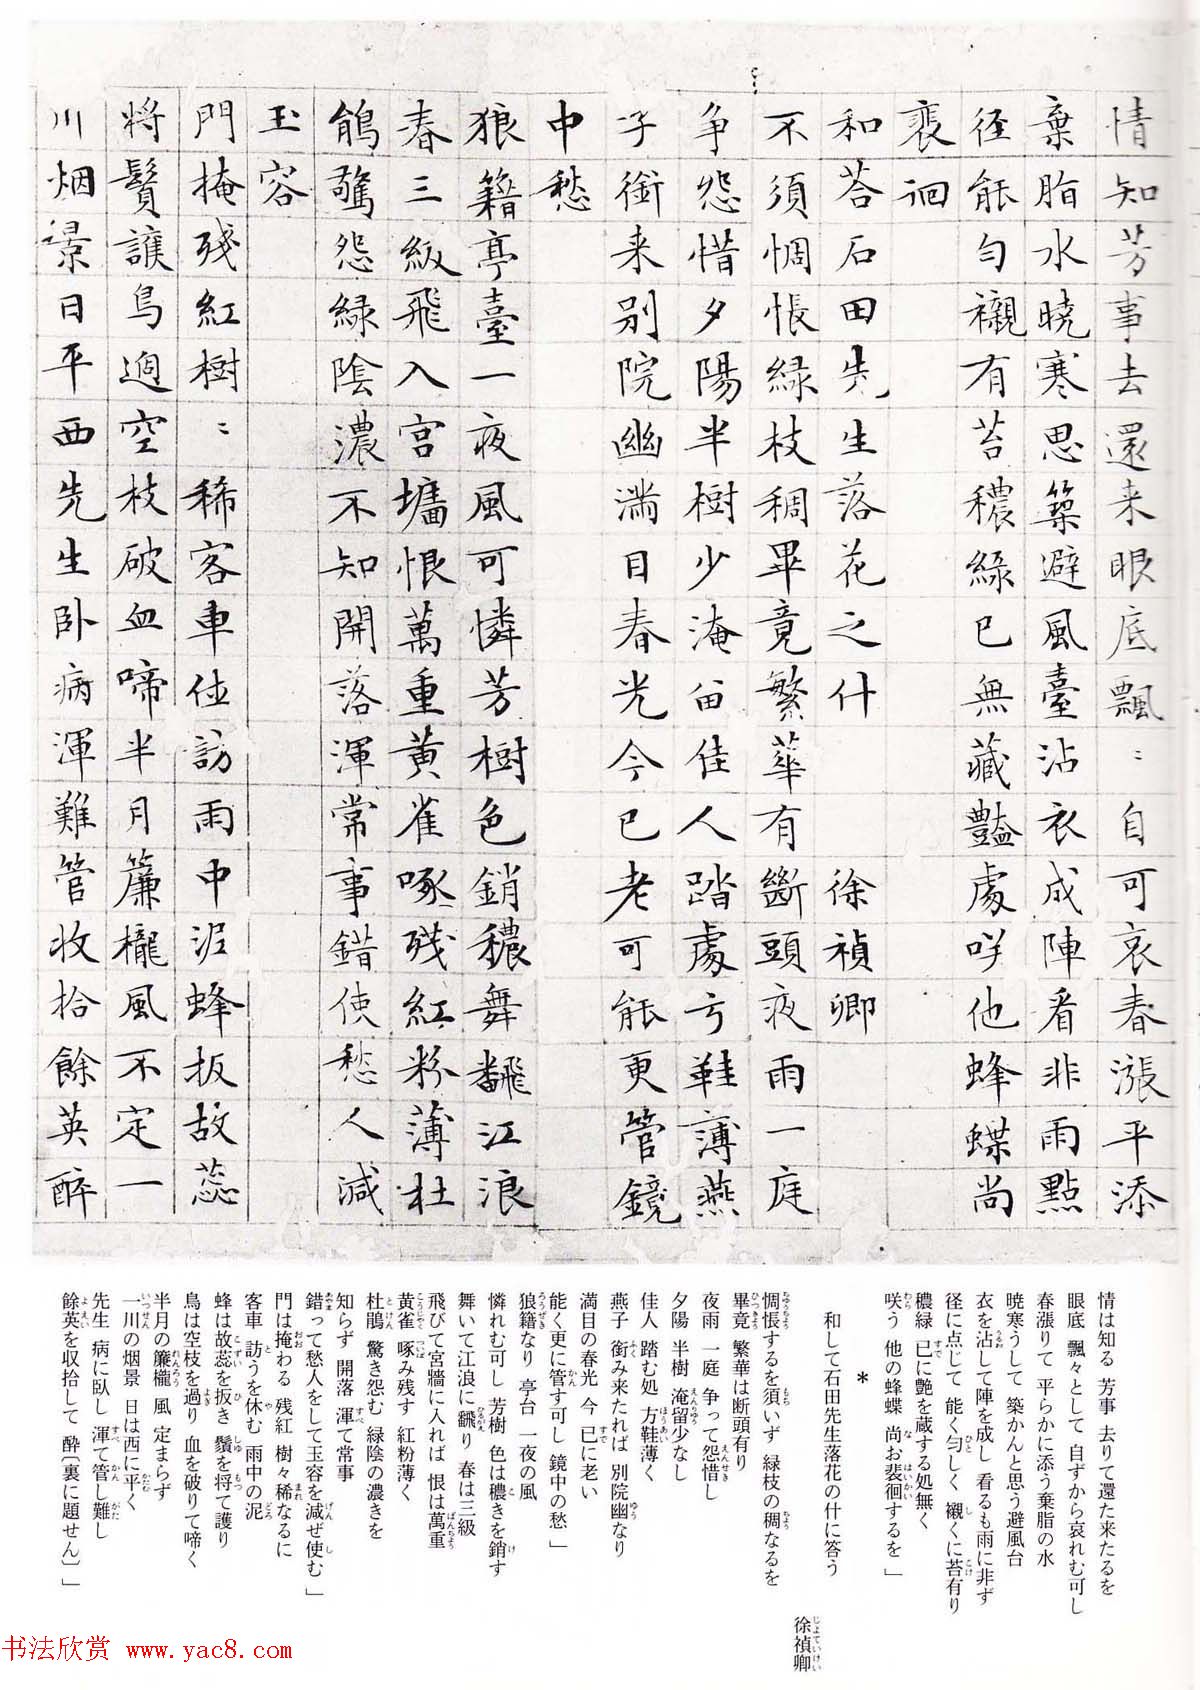 情知芳事去還来眼底飄〻自可哀春漲平添
棄脂水曉寒思築避風臺沾衣成陣看非雨點
徑能勻襯有苔穠綠已無藏豔處咲他蜂蝶尚
裵徊
和荅石田先生落花之什　徐禎卿
不須惆悵綠枝稠畢竟繁華有斷頭夜雨一庭
争怨惜夕陽半樹少淹畱佳人踏處方鞋薄燕
子銜来別院幽滿目春光今已老可能更管鏡
中愁
狼籍亭臺一夜風可憐芳樹色銷穠舞飜江浪
春三級飛入宮墻恨萬重黃雀啄殘紅粉薄杜
鵑驚怨綠陰濃不知開落渾常事錯使愁人減
玉容
門掩殘紅樹〻稀客車住訪雨中泥蜂扳故蕊
將鬚護鳥過空枝破血啼半月簾櫳風不定一
川烟景日平西先生卧病渾難管收拾餘英醉
情は知る 芳事 去りて還た来たるを
眼底 飄々として 自ずから哀れむ可し
春漲りて 平らかに添う棄脂の水
暁寒うして 築かんと思う避風台
衣を沾して陣を成し 看るも雨に非ず
径に点じて 能く勻しく 襯くに苔有り
穠緑 已に艶を蔵する処無く
咲う 他の蜂蝶 尚お裴徊するを」
＊
和して石田先生落花の什に答う
徐禎卿
惆悵するを須いず 緑枝の稠なるを
畢竟 繁華は断頭有り
夜雨 一庭 争って怨惜し
夕陽 半樹 淹留少なし
佳人 踏む処 方鞋薄く
燕子 銜み来たれば 別院幽なり
満目の春光 今 已に老い
能く更に管す可し 鏡中の愁」
狼籍なり 亭台 一夜の風
憐れむ可し 芳樹 色は穠きを銷す
舞いて江浪に飜り 春は三級
飛びて宮牆に入れば 恨は萬重
黄雀 啄み残す 紅粉薄く
杜鵑 驚き怨む 緑陰の濃きを
知らず 開落 渾て常事
錯って愁人をして玉容を減ぜ使む」
門は掩わる 残紅 樹々稀なるに
客車 訪うを休む 雨中の泥
蜂は故蕊を扳き 鬚を将て護り
鳥は空枝を過り 血を破りて啼く
半月の簾櫳 風 定まらず
一川の烟景 日は西に平く
先生 病に臥し 渾て管し難し
餘英を収拾して 酔〔裏に題せん〕」
书法欣赏 www.yac8.com